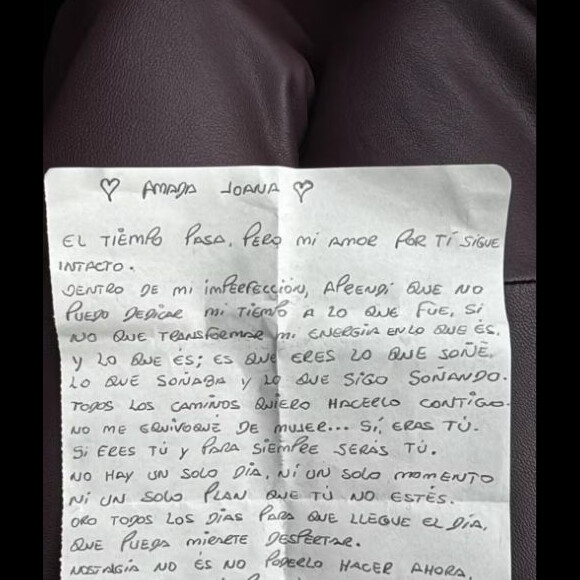 ♡ AMADA JOANA ♡
EL TIÊMPO PASA, PERO MI AMOR POR TÍ SIGUE
INTACTO.
DENTRO DE MI IMPERFECCIÓN, APRENDÍ QUE NO
PUEDO DEDICAR MI TIEMPO A LO QUE FUE, SI
NO QUE TRANSFORMAR MI ENERGIA EN LO QUE ÉS.
Y LO QUE ÉS; ES QUE ERES LO QUE SOÑÉ.
LO QUE SOÑABA Y LO QUE SIGO SOÑANDO.
TODOS LOS CAMINOS QUIERO HACERLO CONTIGO.
NO ME EQUIVOQUÉ DE MUJER... SÍ, ERAS TÚ.
SI ERES TÚ Y PARA SIEMPRE SERÁS TÚ.
NO HAY UN SOLO DÍA, NI UN SOLO MOMENTO
NI UN SOLO PLAN QUE TÚ NO ESTÉS.
ORO TODOS LOS DÍAS PARA QUE LLEGUE EL DÍA,
QUE PUEDA DESPERTAR.
NOSTALGIA NO ÉS NO PODERLO HACER AHORA,